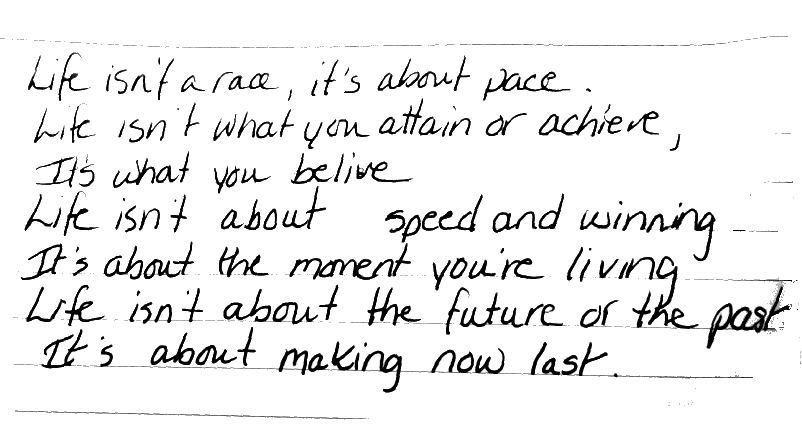 Life isn't a race, it's about pace.
Life isn't what you attain or achieve,
It's what you belive
Life isn't about speed and winning
It's about the moment you're living
Life isn't about the future or the past
It's about making now last.